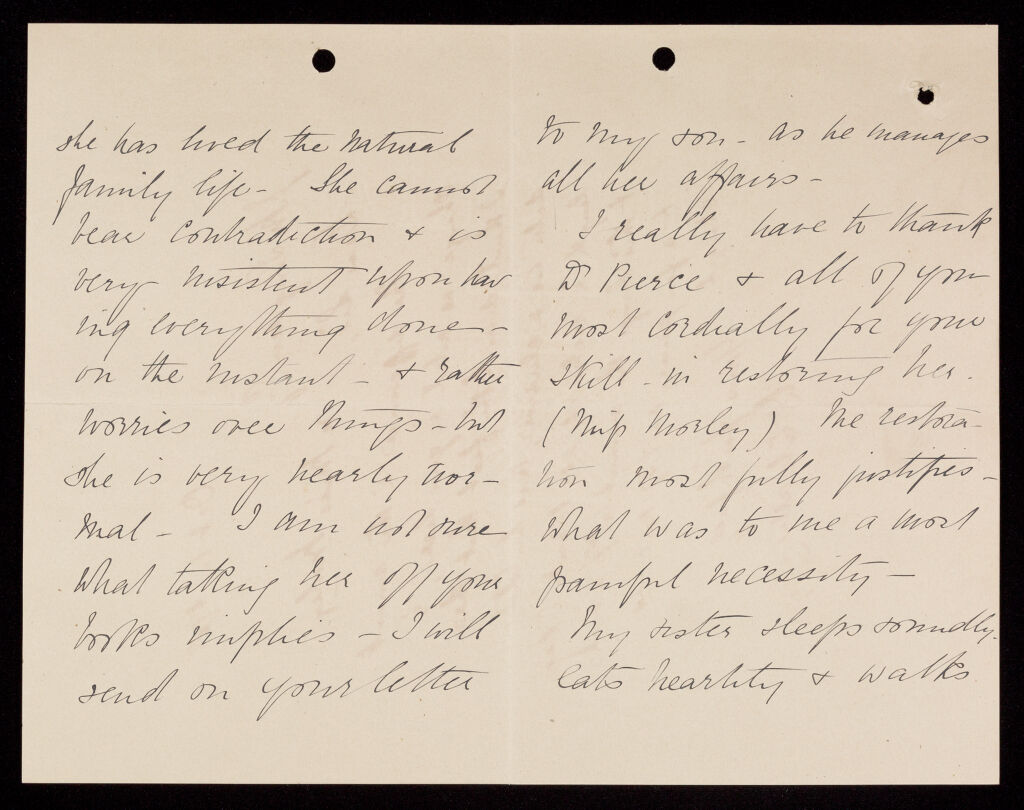 she has lived the natural
family life - She cannot
bear contradiction & is
very insistent upon hav
ing everything done -
on the instant - & rather
worries over things - but
she is very nearly nor -
mal - I am not sure
what taking her off your
books implies - I will
send on your letter
to my son - as he manages
all her affairs -
I really have to thank
Dr Pierce & all of you
most cordially for your
skill - in restoring her.
(Miss Morley) The restora -
tion most fully justifies -
what was to me a most
painful necessity -
My sister sleeps soundly.
eats heartily & walks